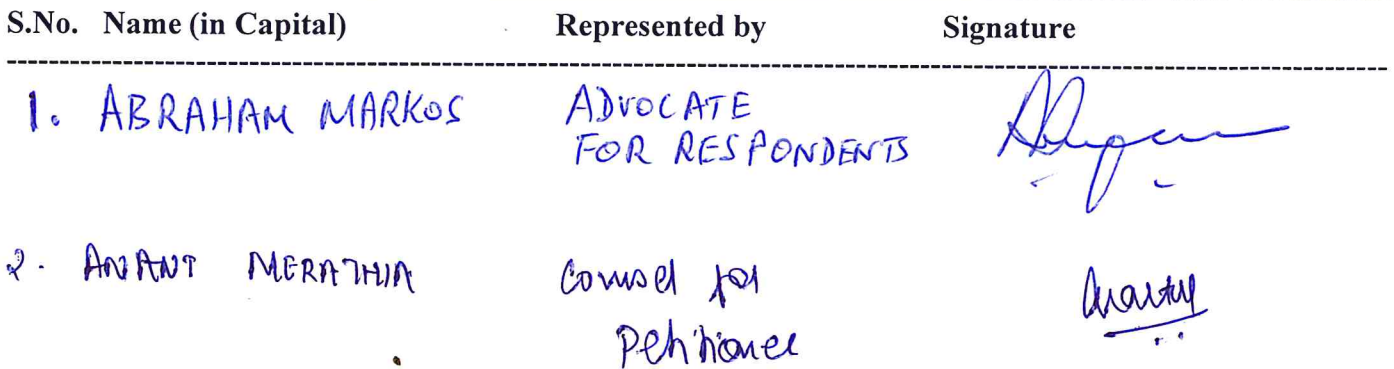 S.No. Name (in Capital) Represented by Signature
1. ABRAHAM MARKOS ADVOCATE
FOR RESPONDENTS
2. ANANT MERATHIA Counsel for
Petitioner